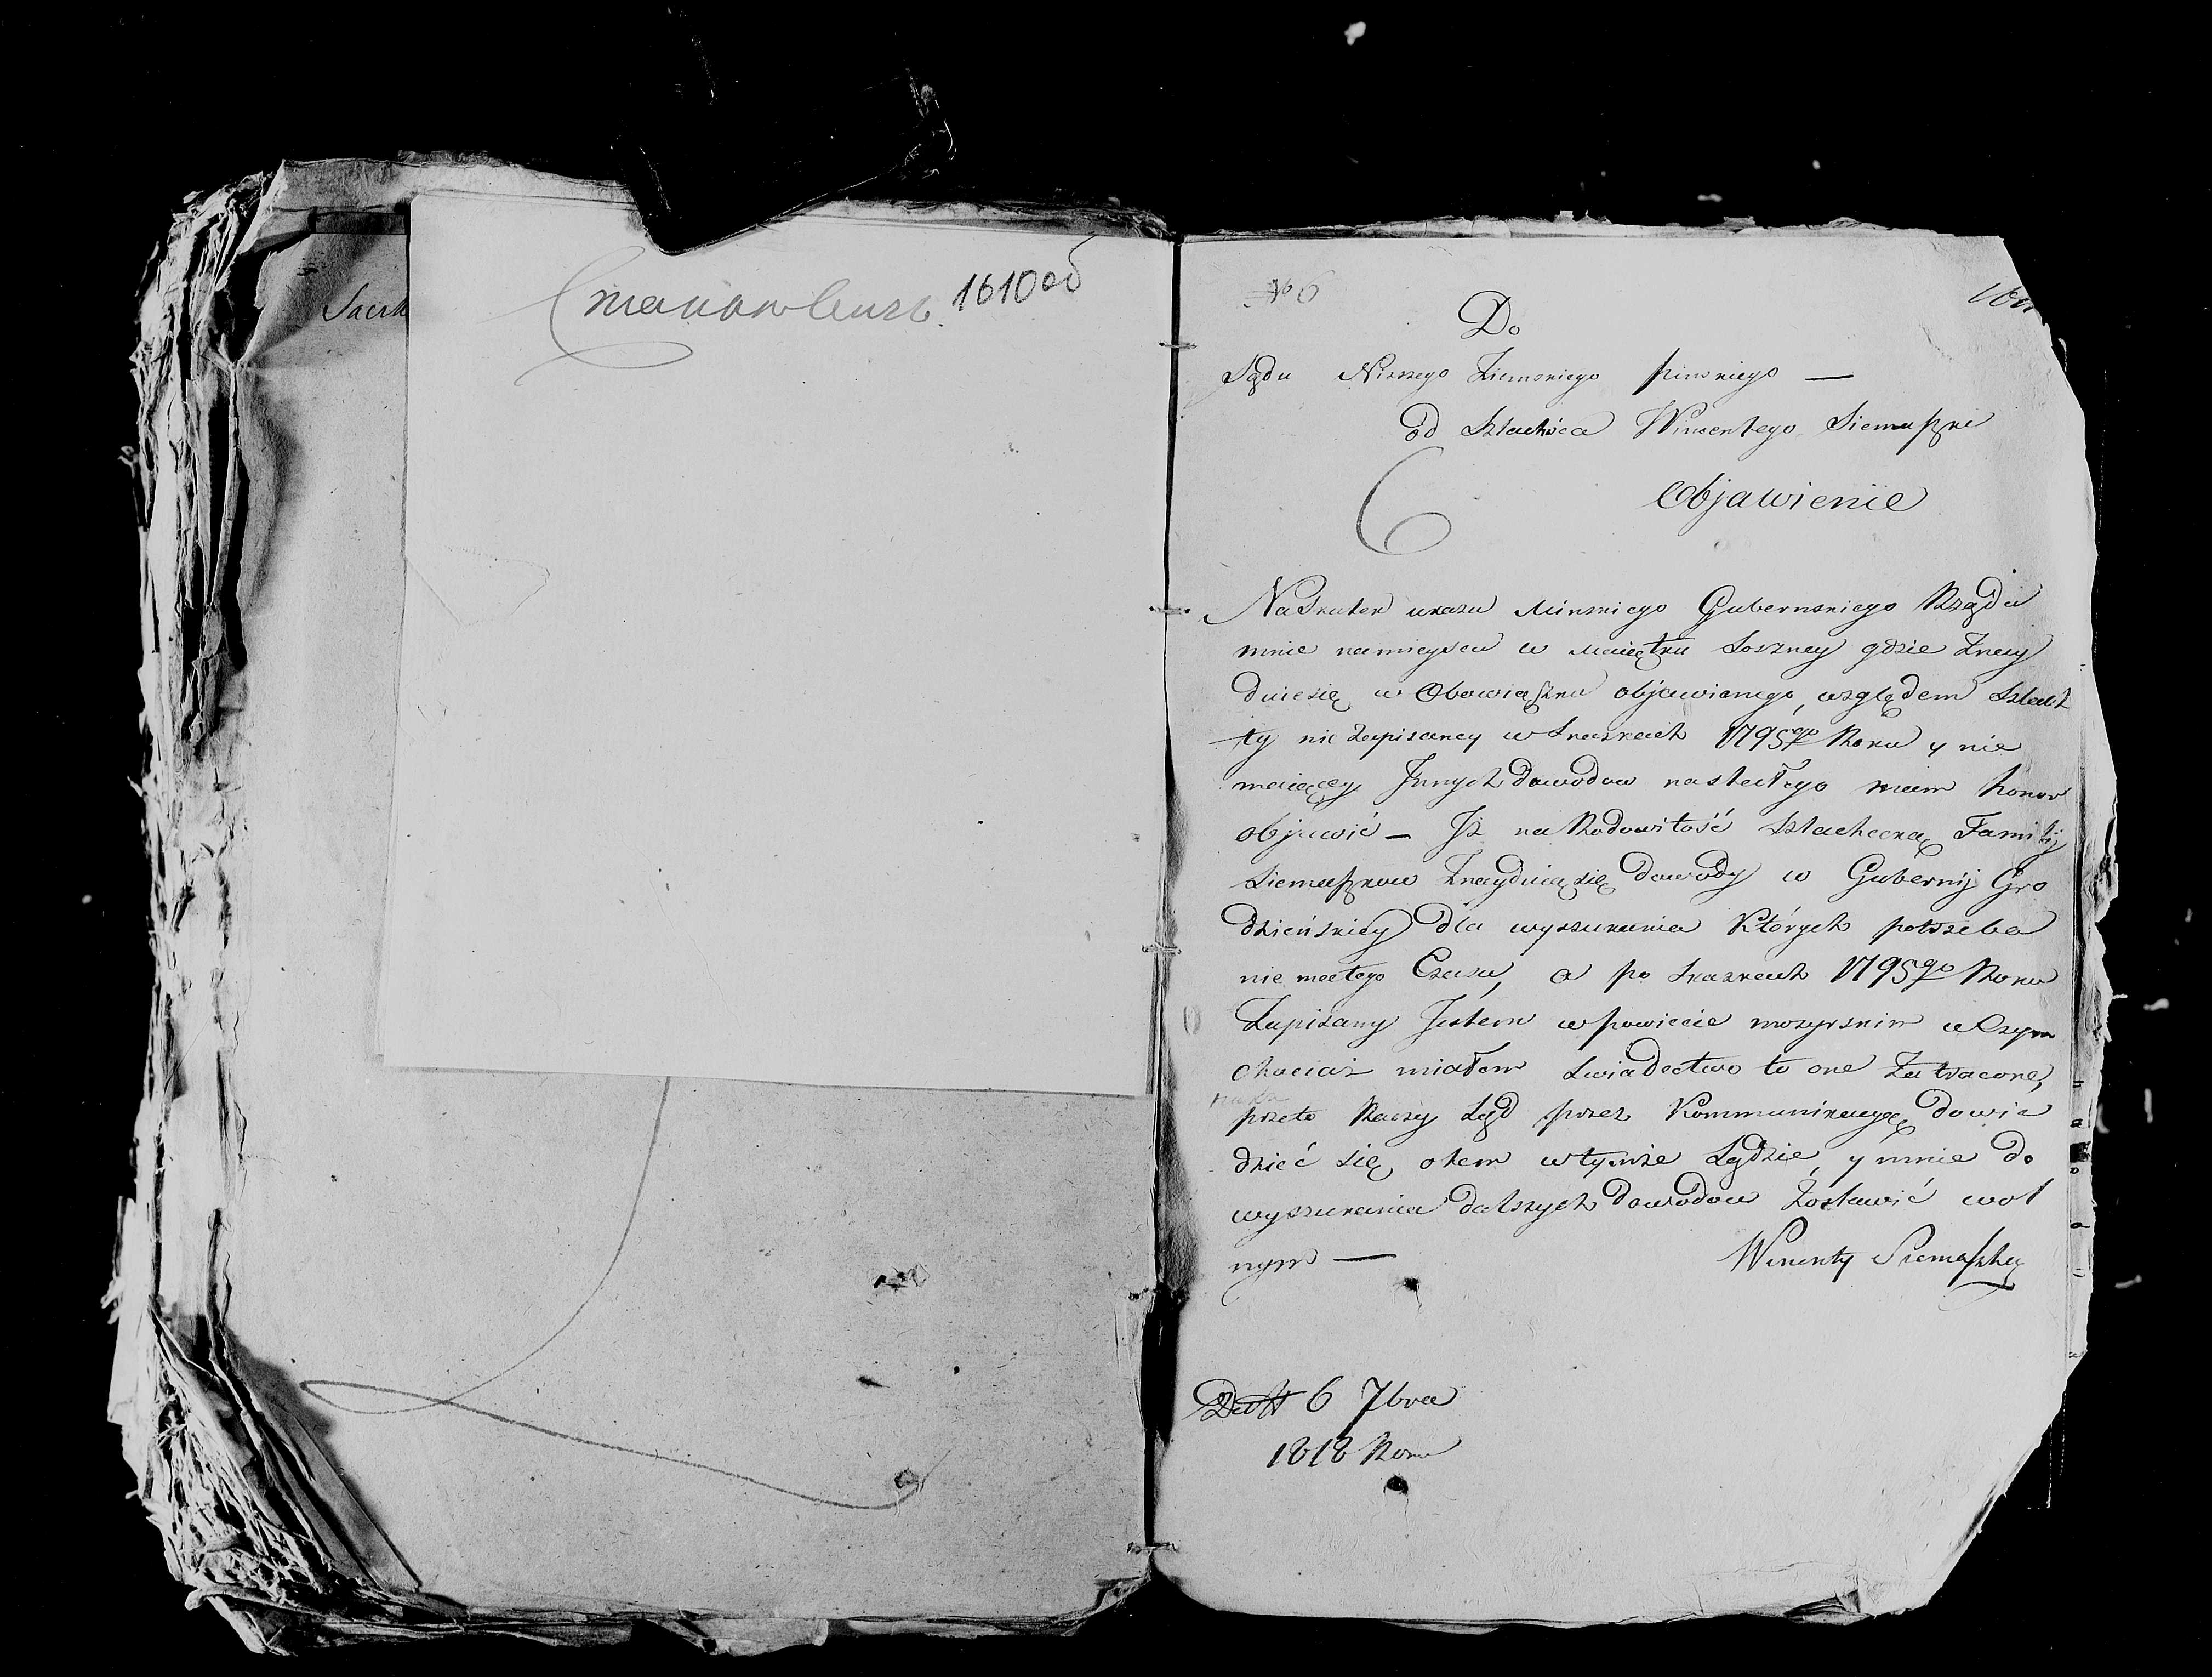 1610об
№ 6
Do
Sądu Niższego Ziemskiego pinskiego —
od Szlachcica Wincentego Siemaszki
Objawienie
Na Skutek ukazu Minskiego Gubernskiego Rządu
mnie na mieyscu w Maiętku Soszney gdzie Znay
duie się w Obowiązku objawionego, względem Szlach
ty nie Zapisaney w Skazkach 1795go Roku y nie
maiącey Jnnych dowodow nastałego mam honor
objawić — Jż na Rodowitość Szlachecką Familij
Siemaszkow Znayduią się dowody w Gubernij Gro
dzieńskiey dla wyszukania Których potrzeba
nie małego Czasu, a po Skazkach 1795go Roku
Zapisany Jestem w powiecie mozyrskim w Czym
chociaż miałem Swiadectwo to one Zatracone,
przeto Raczy Sąd przez Kommunikacyą dowie
dzieć się otem w tymże Sądzie, y mnie do
wyszukania dalszych dowodow Zostawić wol
nym —
Wincenty Siemaszko
Datt 6 7bra
1818 Roku